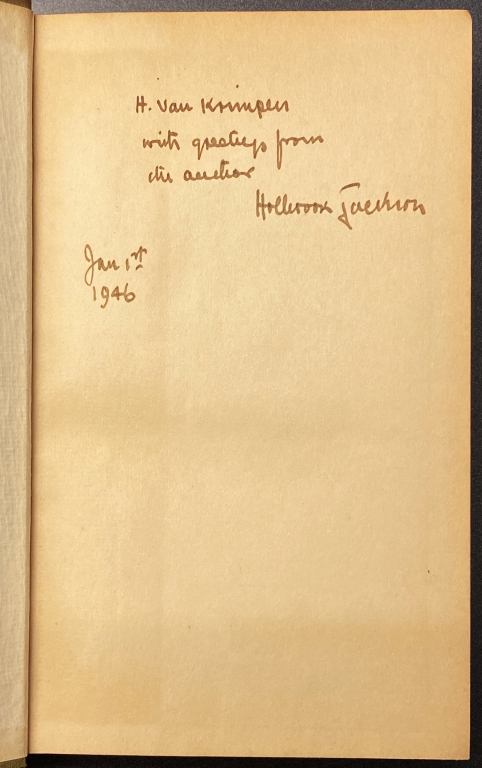 H. Van Krimpen
with greetings from
the author
Holbrook Jackson
Jan 1st
1946